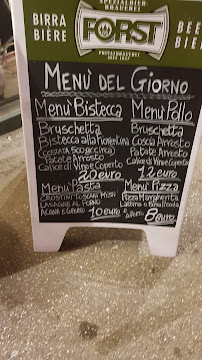 SPEZIALBIER-
BRAUEREI
BIRRA
BIÈRE
FORST
BEE
BIE
MENÙ DEL GIORNO
MENÙ BISTECCA
BRUSCHETTA
BISTECCA ALLA FIORENTINA
PATATE ARROSTO
CALICE DI VINO E COPERTO
20 EURO
MENÙ POLLO
BRUSCHETTA
COSCIA ARROSTO
PATATE ARROSTO
CALICE DI VINO E COPERTO
12 EURO
MENÙ PASTA
CROSTINI TOSCANI MISTI
LASAGNE AL FORNO
ACQUA E COPERTO 10 EURO
MENÙ PIZZA
PIZZA MARGHERITA
LATTINA O BIRRA PICCOLA
8 EURO